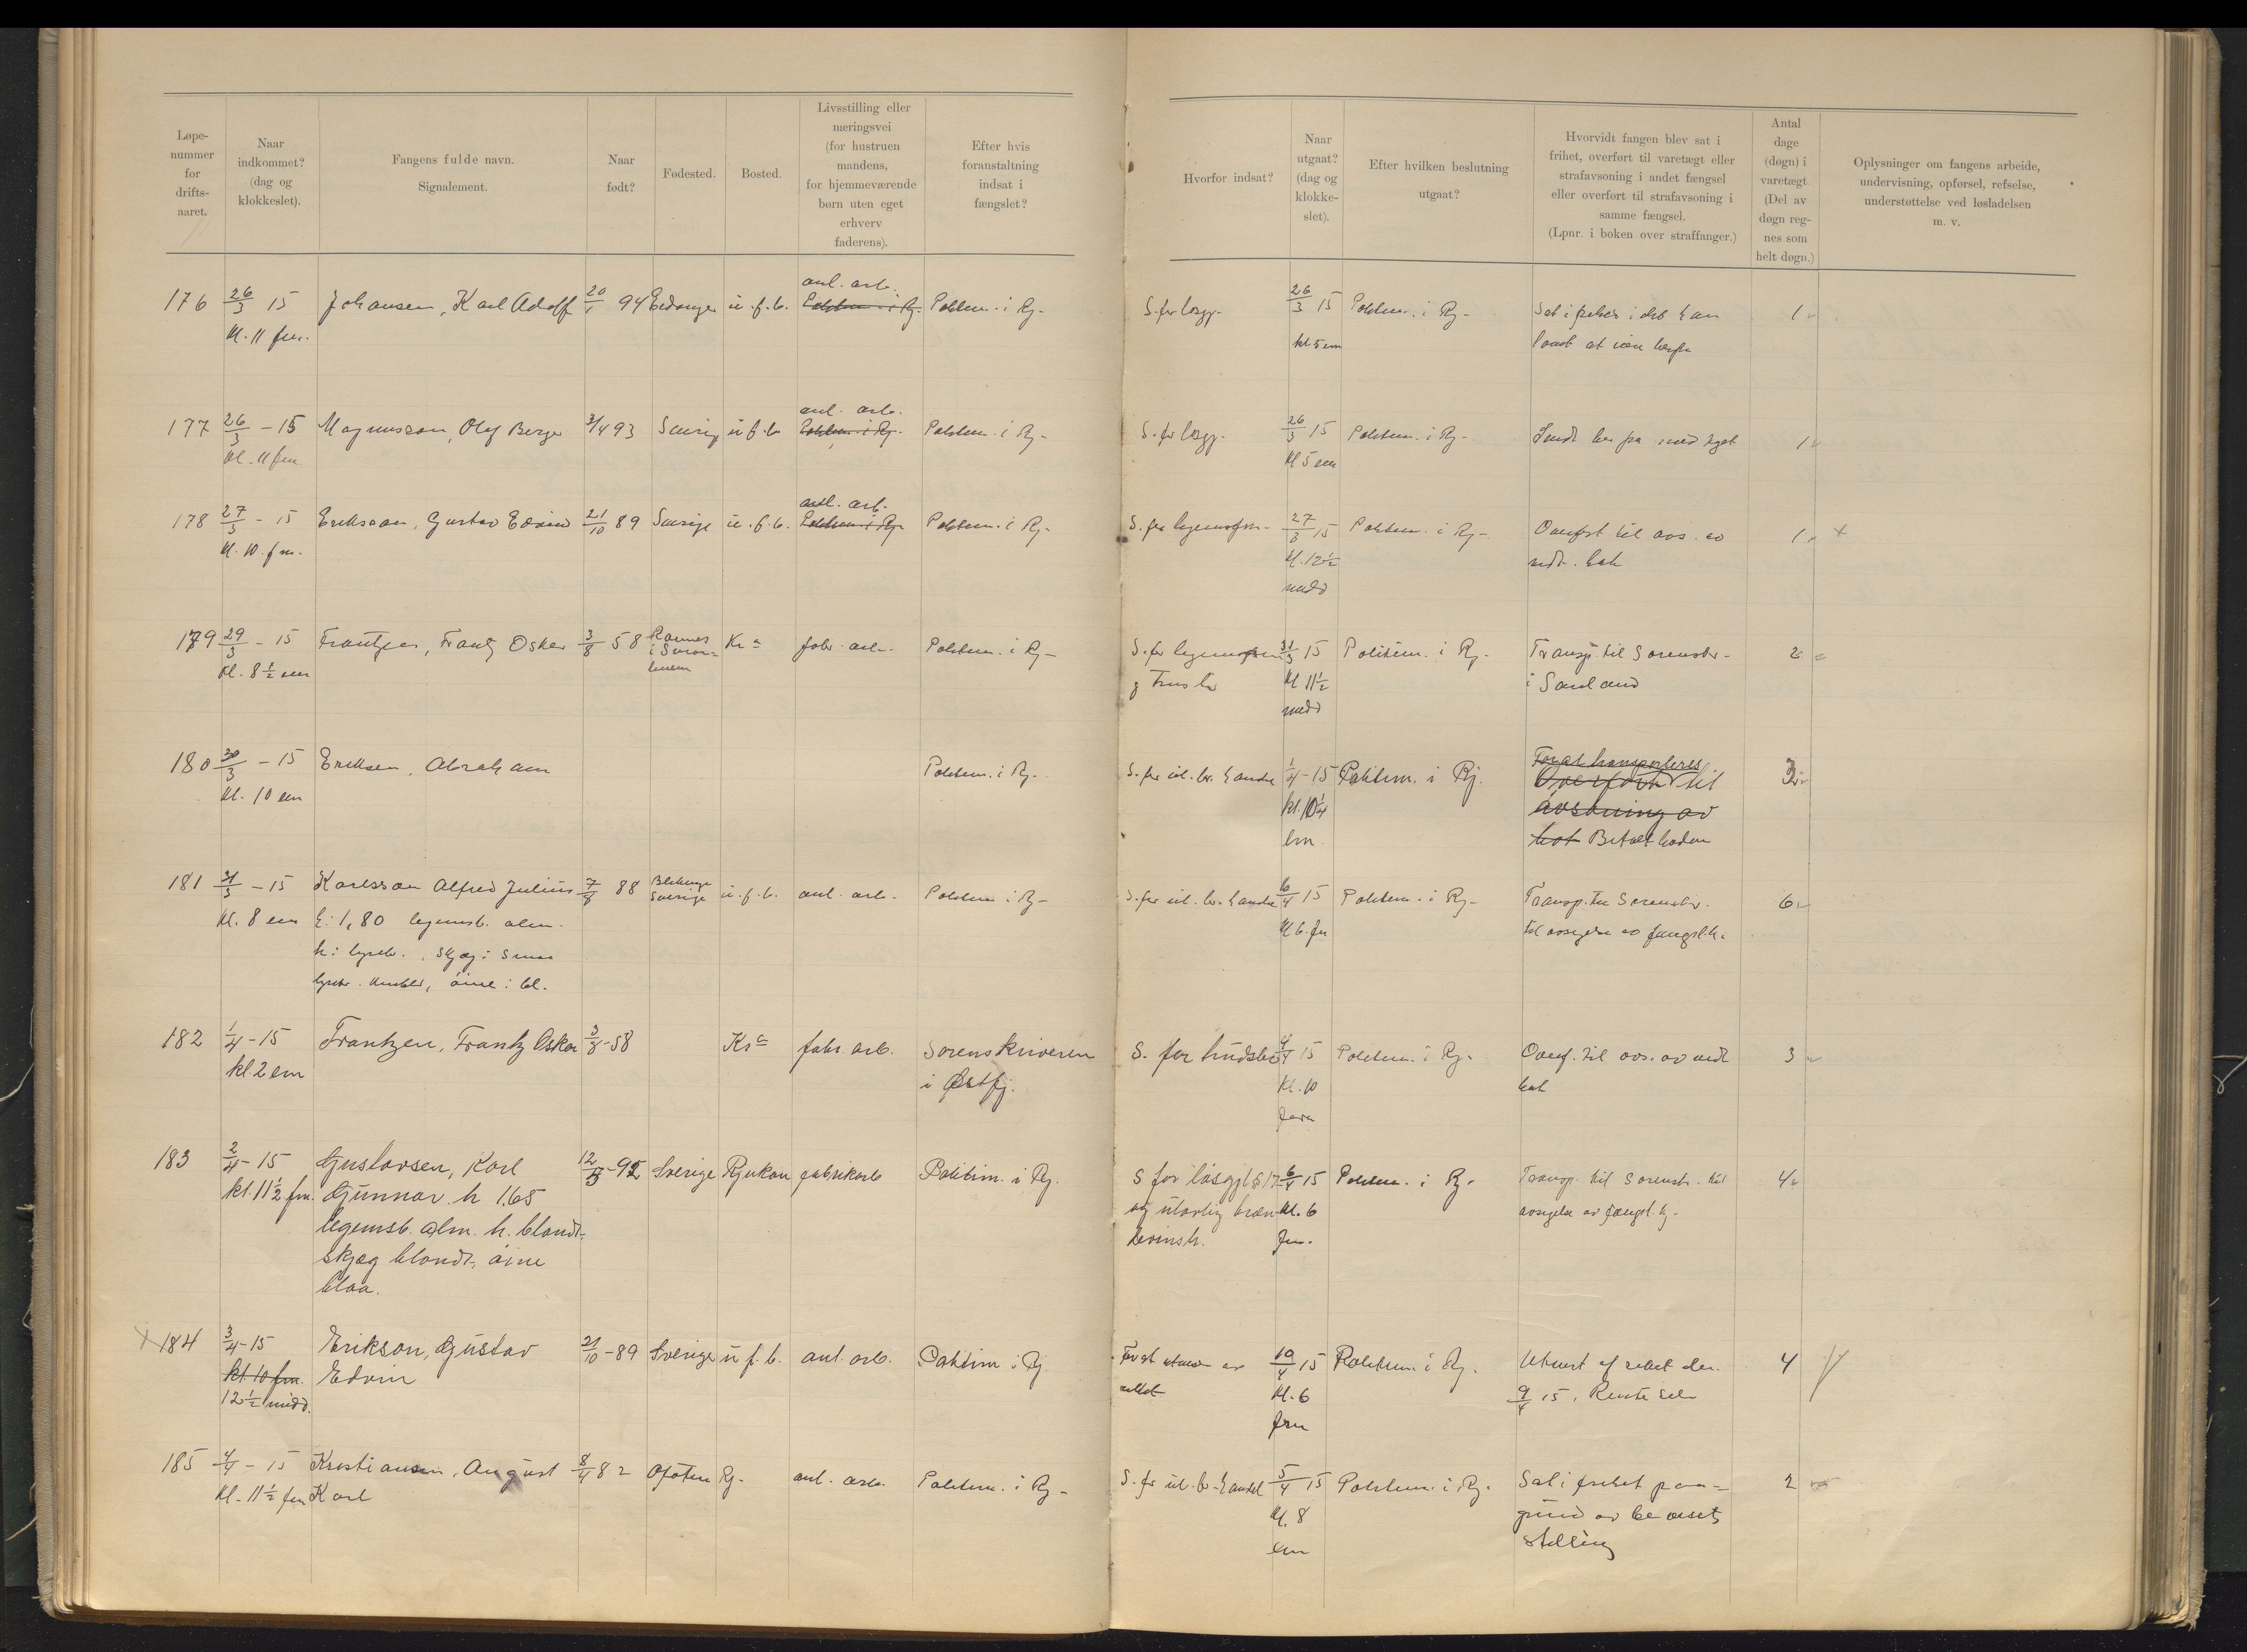 Løpe-
nummer
for
drifts-
aaret.
Naar
indkommet?
(dag og
klokkeslet).
Fangens fulde navn.
Signalement.
Naar
født?
Fødested.
Bosted.
Livsstilling eller
næringsvei
(for hustruen
mandens,
for hjemmeværende
børn uten eget
erhverv
faderens).
Efter hvis
foranstaltning
indsat i
fængslet?
Hvorfor indsat?
Naar
utgaat?
(dag og
klokke-
slet).
Efter hvilken beslutning
utgaat?
Hvorvidt fangen blev sat i
frihet, overført til varetægt eller
strafavsoning i andet fængsel
eller overført til strafavsoning i
samme fængsel.
(Lpnr. i boken over straffanger.)
Antal
dage
(døgn) i
varetægt.
(Del av
døgn reg-
nes som
helt døgn.)
Oplysninger om fangens arbeide,
undervisning, opførsel, refselse,
understøttelse ved løsladelsen
m. v.
176 26/3 15 Johansen, Karl Adolf 20/1 94 Eidanger u. f. b. anl. arb. Politim. i Rj- S. for løsgj- 26/3 15 Politim. i Rj- Sat i frihet idet han 1
kl. 11 fm. kl 5 em
177 26/3 - 15 Magnusson, Olof Berge 3/4 93 Sverig u f. b anl. arb. Politim. i Rj- S. for løsgj- 26/3 15 Politim. i Rj- 1
kl. 11 fm Kl 5 em
178 27/3 - 15 Eriksson, Gustav Edvin 21/10 89 Sverige u. f. b. anl. arb. Politim. i Rj- S. for legemsfor- 27/3 15 Politim. i Rj- Overført til avs. av 1 +
kl. 10. fm. kl. 12 1/2 vedt. bot
midd
179 29/3 - 15 Frantzen, Frantz Oskar 3/8 58 Kr a fabr. arb. Politim. i Rj- S. for legemsforn 31/3 15 Politim. i Rj- Transp. til Sorenskr- 2
Kl. 8 1/2 em og Trusler kl 11 1/2 i Sauland
midd
180 30/3 - 15 Eriksen, Abraham Politim. i Rj- S. for ul. br. handel 1/4 - 15 Politim. i Rj. For at transporteres 3
kl. 10 em kl. 10 1/4 Overført til
em avsoning av
bot Betalt boden
181 31/3 - 15 Karlsson Alfred Julius 7/8 88 Blekinge Sverige u. f. b. anl. arb. Politim i Rj- S. for ul. br. handel 6/4 15 Politim. i Rj- Transp. til Sorenskr. 6
Kl. 8 em h: 1,80 legemsb. alm. Kl 6. fm til avsigelse av fængsl.k.
h: lysebr. Skjæg: Smaa
øine: bl.
182 1/4 - 15 Frantzen, Frantz Oskar 3/8 - 58 Kr a fabr. arb. Sorenskriveren S. for trudsler 4/4 15 Politim. i Rj- Overf. til avs. av vedt 3
kl. 2 em i Østfj. kl. 10 bot
form
183 2/4 - 15 Gustavsen, Karl 12/3 - 92 Sverige Rjukan fabrikarb Politim. i Rj. S for løsgjl § 17 6/4 15 Politim. i Rj- Transp. til Sorenskr. til 4
kl. 11 1/2 fm. Gunnar. h 1.65 og ulovlig bræn- kl. 6 avsigelse av fængsl. kj-
legemsb. alm. h. blond-, devinsh. fm.
skjæg blondt-, øine
blaa.
184 3/4 - 15 Erikson, Gustav 21/10 - 89 Sverige u f. b. anl. arb. Politim i Rj. 10/4 15 Politim. i Rj. 4
kl. 10 fm. Edvin kl. 6 9/4 15.
12 1/2 midd. fm
185 4/4 - 15 Kristiansen, August 8/4 82 Ofoten Rj- anl. arb. Politim. i Rj- S. for ul. br. handel 5/4 15 Politim. i Rj- Sat i frihet paa- 2
kl. 11 1/2 fm Karl kl. 8 grund av beviset,
em stilling